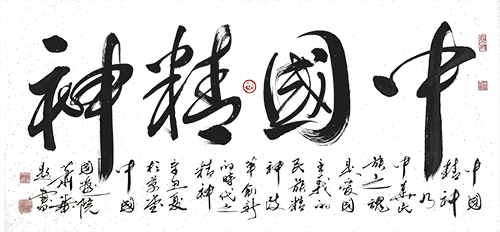 中國精神
中國
精神
乃
中華民
族之魂
是愛國
主義的
民族精
神改
革創新
的時代之
精神
辛丑夏
於
中國
國畫院
書